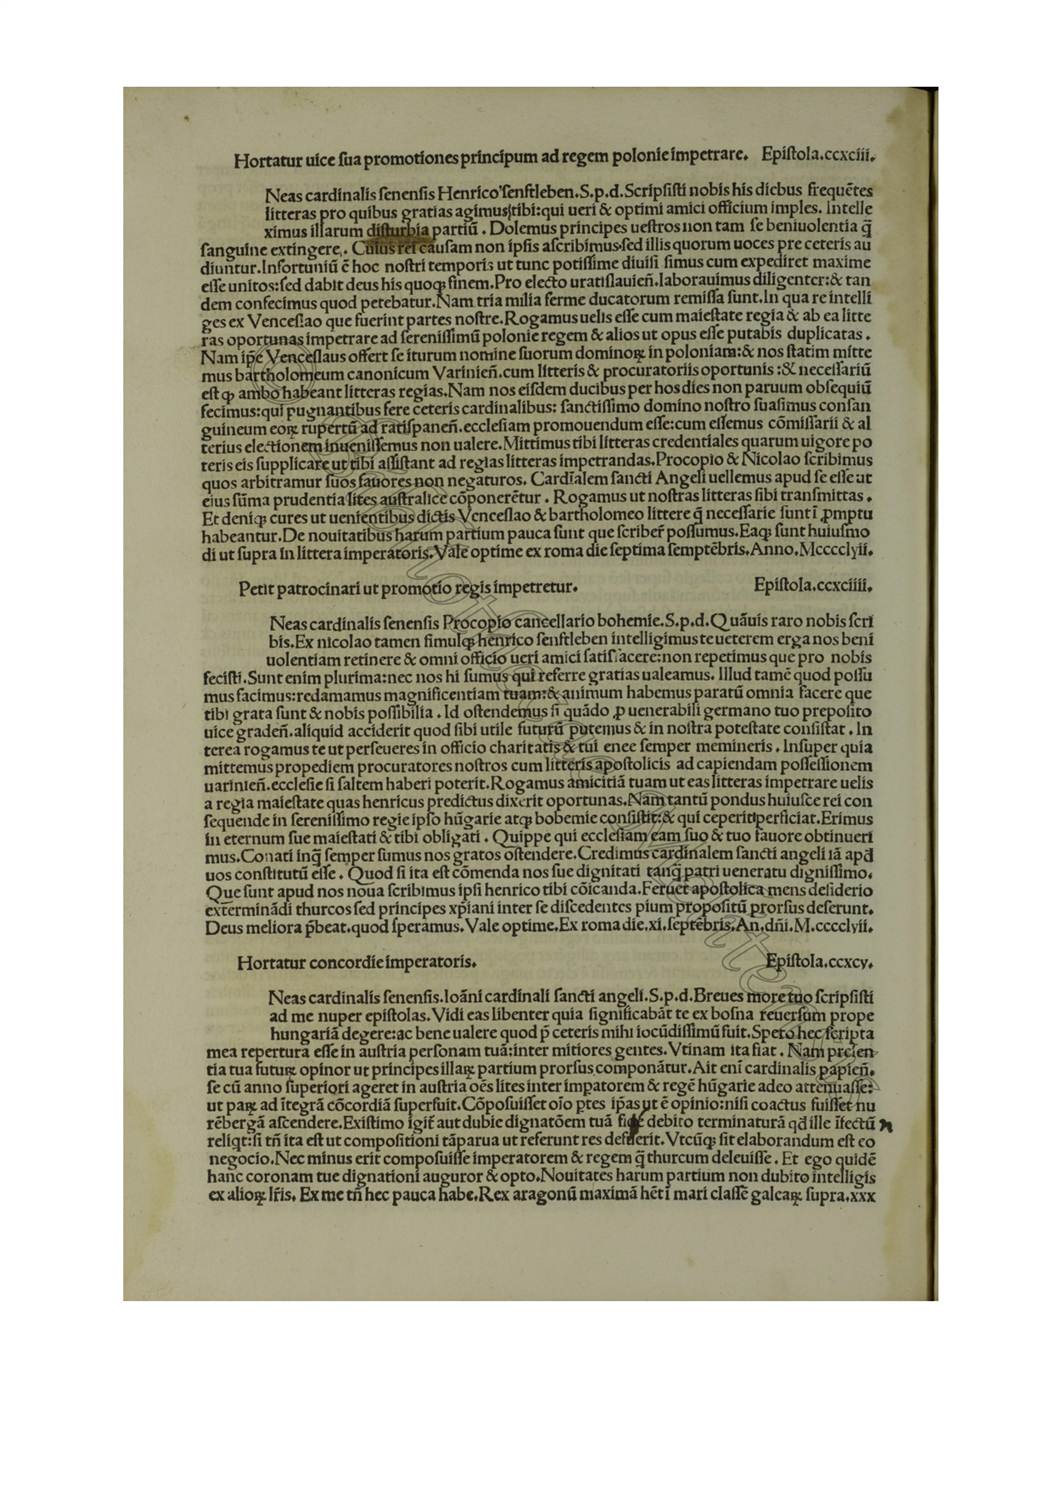 Hortatur uice ſua promotiones principum ad regem polonie impetrare. Epiſtola.ccxciii.
Neas cardinalis ſenenſis Henrico ſenftleben.S.p.d.Scripſiſti nobis his diebus frequētes
litteras pro quibus gratias agimus tibi:qui ueri & optimi amici officium imples. Intelle
ximus illarum diſturbia partiū . Dolemus principes ueſtros non tam ſe beniuolentia q̄
ſanguine extingere. Cuius rei cauſam non ipſis aſcribimus.ſed illis quorum uoces pre ceteris au
diuntur.Infortuniū ē hoc noſtri temporis ut tunc potiſſime diuiſi ſimus cum expediret maxime
eſſe unitos:ſed dabit deus his quoqꝫ finem.Pro electo uratiſlauien̄.laborauimus diligenter:& tan
dem confecimus quod petebatur.Nam tria milia ferme ducatorum remiſſa ſunt.In qua re intelli
ges ex Venceſlao que fuerint partes noſtre.Rogamus uelis eſſe cum maieſtate regia & ab ea litte
ras oportunas impetrare ad ſereniſſimū polonie regem & alios ut opus eſſe putabis duplicatas .
Nam ip̄e Venceſlaus offert ſe iturum nomine ſuorum dominoꝝ in poloniam:& nos ſtatim mitte
mus bartholomeum canonicum Varinien̄.cum litteris & procuratoriis oportunis :& neceſſariū
eſt ꝙ ambo habeant litteras regias.Nam nos eiſdem ducibus per hos dies non paruum obſequiū
fecimus:qui pugnantibus fere ceteris cardinalibus: ſanctiſſimo domino noſtro ſuaſimus conſan
guineum eoꝝ rupertū ad ratiſpanen̄.eccleſiam promouendum eſſe:cum eſſemus cōmiſſarii & al
terius electionem inueniſſemus non ualere.Mittimus tibi litteras credentiales quarum uigore po
teris eis ſupplicare ut tibi aſſiſtant ad regias litteras impetrandas.Procopio & Nicolao ſcribimus
quos arbitramur ſuos fauores non negaturos. Cardīalem ſancti Angeli uellemus apud ſe eſſe ut
eius ſūma prudentia lites auſtralice cōponerētur . Rogamus ut noſtras litteras ſibi tranſmittas .
Et deniqꝫ cures ut uenientibus dictis Venceſlao & bartholomeo littere q̄ neceſſarie ſunt ī ꝓmptu
habeantur.De nouitatibus harum partium pauca ſunt que ſcriber̄ poſſumus.Eaqꝫ ſunt huiuſmo
di ut ſupra in littera imperatoris.Vale optime ex roma die ſeptima ſemptēbris.Anno.Mcccclyii.
Petit patrocinari ut promotio regis impetretur. Epiſtola.ccxciiii.
Neas cardinalis ſenenſis Procopio cancellario bohemie.S.p.d.Quāuis raro nobis ſcri
bis.Ex nicolao tamen ſimulqꝫ henrico ſenftleben intelligimus te ueterem erga nos beni
uolentiam retinere & omni officio ueri amici ſatiſfacere:non repetimus que pro nobis
feciſti.Sunt enim plurima:nec nos hi ſumus qui referre gratias ualeamus. Illud tamē quod poſſu
mus facimus:redamamus magnificentiam tuam:& animum habemus paratū omnia facere que
tibi grata ſunt & nobis poſſibilia . Id oſtendemus ſi quādo ꝓ uenerabili germano tuo prepoſito
uice graden̄.aliquid acciderit quod ſibi utile futurū putemus & in noſtra poteſtate conſiſtat . In
terea rogamus te ut perſeueres in officio charitatis & tui enee ſemper memineris . Inſuper quia
mittemus propediem procuratores noſtros cum litteris apoſtolicis ad capiendam poſſeſſionem
uarinien̄.eccleſie ſi ſaltem haberi poterit.Rogamus amicitiā tuam ut eas litteras impetrare uelis
a regia maieſtate quas henricus predictus dixerit oportunas.Nam tantū pondus huiuſce rei con
ſequende in ſereniſſimo regie ipſo hūgarie atqꝫ bobemie conſiſtit:& qui ceperit perficiat.Erimus
in eternum ſue maieſtati & tibi obligati . Quippe qui eccleſiam eam ſuo & tuo fauore obtinueri
mus.Conati inq̄ ſemper ſumus nos gratos oſtendere.Credimus cardinalem ſancti angeli iā apđ
uos conſtitutū eſſe . Quod ſi ita eſt cōmenda nos ſue dignitati tanq̄ patri ueneratu digniſſimo.
Que ſunt apud nos noua ſcribimus ipſi henrico tibi cōicanda.Feruet apoſtolica mens deſiderio
exterminādi thurcos ſed principes xp̄iani inter ſe diſcedentes pium propoſitū prorſus deſerunt.
Deus meliora p̄beat.quod ſperamus.Vale optime.Ex roma die.xi.ſeptēbris.An.dn̄i.M.cccclyii.
Hortatur concordie imperatoris. Epiſtola.ccxcy.
Neas cardinalis ſenenſis.Ioāni cardinali ſancti angeli.S.p.d.Breues more tuo ſcripſiſti
ad me nuper epiſtolas.Vidi eas libenter quia ſignificabāt te ex boſna reuerſum prope
hungariā degere:ac bene ualere quod p̄ ceteris mihi iocūdiſſimū fuit.Spero hec ſcripta
mea repertura eſſe in auſtria perſonam tuā:inter mitiores gentes.Vtinam ita fiat . Nam preſen
tia tua futuꝝ opinor ut principes illaꝝ partium prorſus componātur.Ait eni cardinalis papien̄.
ſe cū anno ſuperiori ageret in auſtria oēs lites inter impatorem & regē hūgarie adeo attenuaſſe:
ut paꝝ ad ītegrā cōcordiā ſuperſuit.Cōpoſuiſſet oīo ꝑtes ip̄as ut ē opinio:niſi coactus fuiſſet nu
rēbergā aſcendere.Exiſtimo igit̄ aut dubie dignatōem tuā debito terminaturā qđ ille īfectū
reliqt:ſi tn̄ ita eſt ut compoſitioni tāparua ut referunt res defuerit.Vtcūqꝫ ſit elaborandum eſt eo
negocio.Nec minus erit compoſuiſſe imperatorem & regem q̄ thurcum deleuiſſe . Et ego quidē
hanc coronam tue dignationi auguror & opto.Nouitates harum partium non dubito intelligis
ex alioꝝ lr̄is. Ex me tn̄ hec pauca habe.Rex aragonū maximā hēt ī mari claſſē galeaꝝ ſupra.xxx